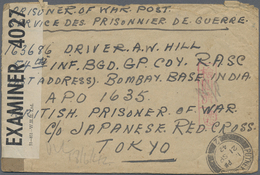 PRISONER OF WAR POST.
SERVICE DES PRISONNIER DE GUERRE.
165686 DRIVER. A.W. HILL
INF. BGD. GP. COY. RASC
ADDRESS). BOMBAY. BASE INDIA
APO 1635.
BRITISH. PRISONER OF WAR
C/O JAPANESE RED. CROSS.
TOKYO
EXAMINER 4022